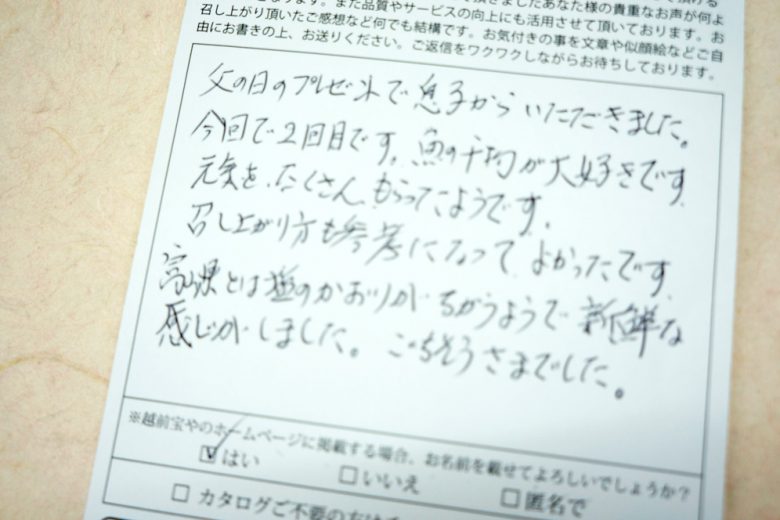 また品質やサービスの向上にも活用させて頂いております。
召し上がり頂いたご感想など何でも結構です。お気付きの事を文章や似顔絵などご自
由にお書きの上、お送りください。ご返信をワクワクしながらお待ちしております。
父の日のプレゼントで息子からいただきました。
今回で2回目です。魚の干物が大好きです。
元気を、たくさん、もらったようです。
召し上がり方も参考になって よかったです
富山県とは塩のかおりがちがうようで 新鮮な
感じがしました。 ごちそうさまでした。
※越前宝やのホームページに掲載する場合、お名前を載せてよろしいでしょうか?
☑はい □いいえ □匿名で
□カタログご不要の方は